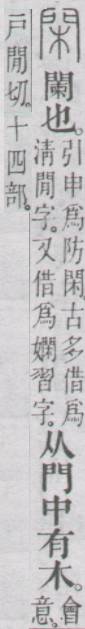 閑 闌也。引申爲防閑。古多借爲清閒字。又借爲嫺習字。从門中有木。會意。
戸閒切。十四部。